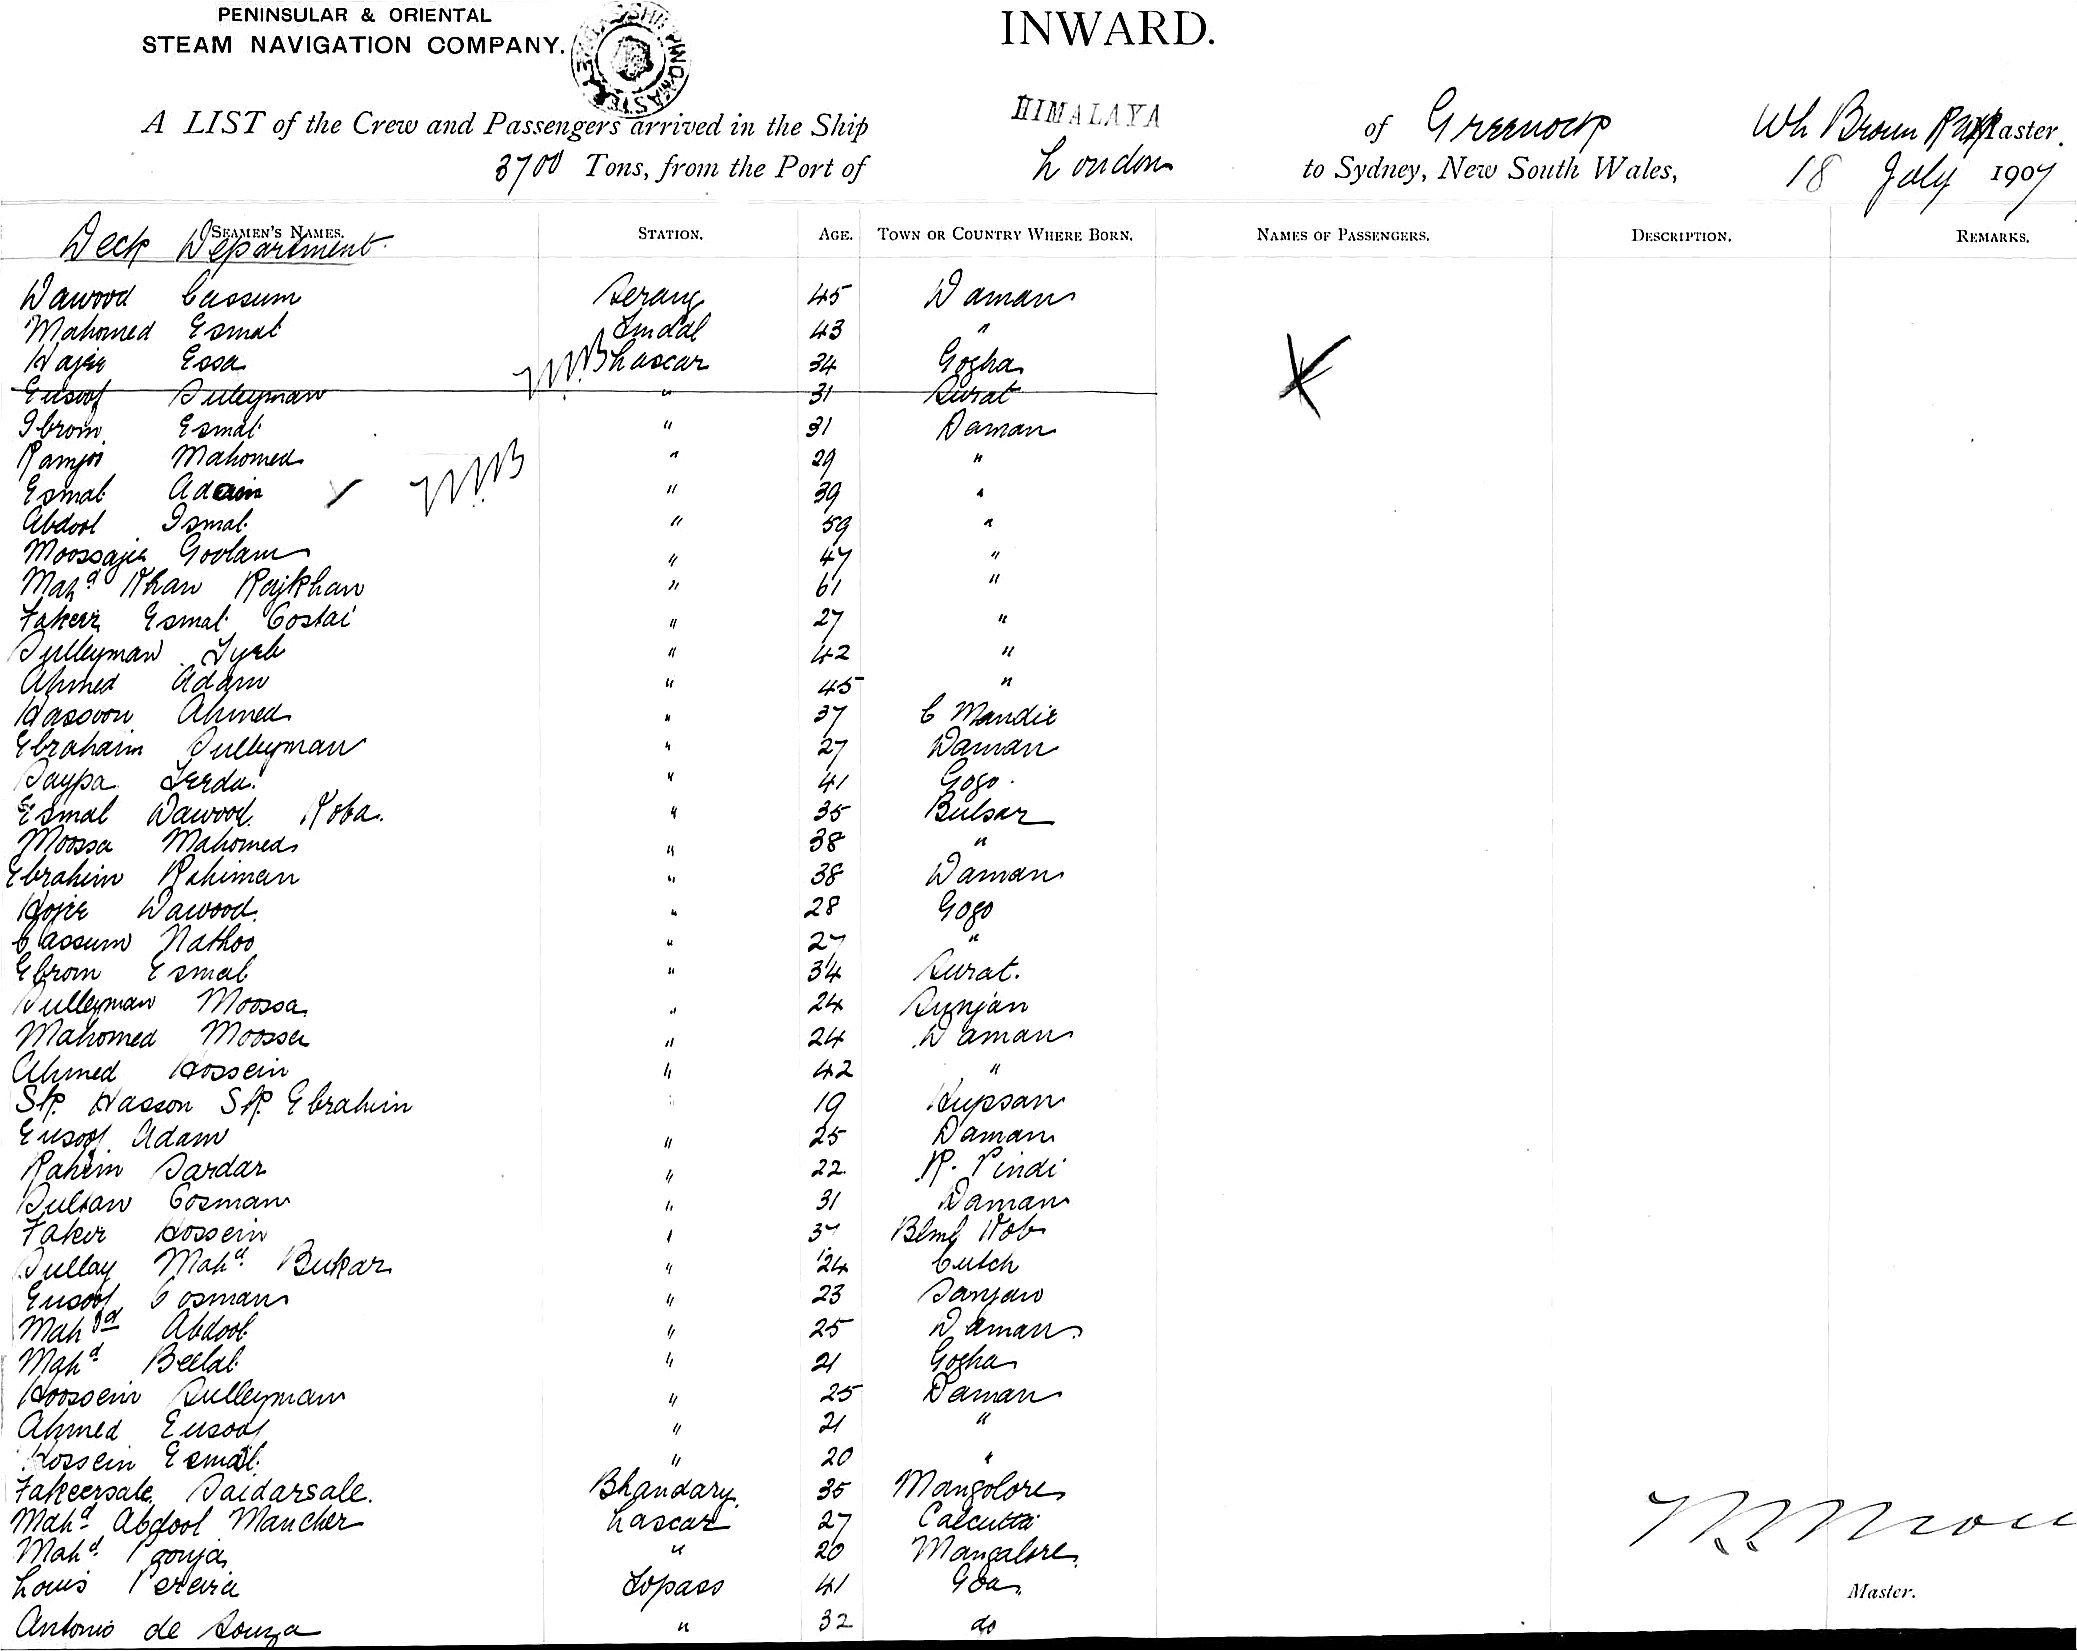 PENINSULAR & ORIENTAL
STEAM NAVIGATION COMPANY.
INWARD.
A LIST of the Crew and Passengers arrived in the Ship HIMALAYA of Greenock Wh Brown RNR Master.
3700 Tons, from the Port of London to Sydney, New South Wales, 18 July 1907
SEAMEN'S NAMES. STATION. AGE. TOWN OR COUNTRY WHERE BORN. NAMES OF PASSENGERS. DESCRIPTION. REMARKS.
Deck Department
Dawood Cassum Serang 45 Daman
Mahomed Esmal Tindal 43 "
Hajee Essa Lascar 34 Gogha
Eusoof Suleyman " 31 Surat
Ibrom Esmal " 31 Daman
Ramjoi Mahomed " 29 "
Esmal Adam " 39 "
Abdool Ismal " 59 "
Moossajee Goolam " 47 "
Mahd Khan Rajkhan " 61 "
Fakeer Esmal Costai " 27 "
Sulleyman Tyeb " 42 "
Ahmed Adam " 45 "
Hassoon Ahmed " 37 C Mandie
Ebrahaim Sulleyman " 27 Daman
Saypa Ferda " 41 Gogo
Esmal Dawood Koba " 35 Bulsar
Moossa Mahomed " 38 "
Ebrahim Rahiman " 38 Daman
Hojee Dawood " 28 Gogo
Cassum Nathoo " 27 "
Ebrom Esmal " 34 Surat.
Sulleyman Moossa " 24 Sunjan
Mahomed Moossa " 24 Daman
Ahmed Hossein " 42 "
Sk. Hasson Sk. Ebrahim " 19 Hupsan
Eusoof Adam " 25 Daman
Rahim Sardar " 22 R. Pindi
Sultan Cosman " 31 Daman
Faker Hossein " 37
Sullay Mahd Bukar " 24 Cutch
Eusoof Cosman " 23 Sanjan
Mahd Abdool " 25 Daman
Mahd Bellal " 21 Gogha
Hoossein Sulleyman " 25 Daman
Ahmed Eusoof " 21 "
Hossein Esmal " 20 "
Fakeersale Saidarsale. Bhandary 35 Mangolore
Mahd Abdool Mancher Lascar 27 Calcutta
Mahd " 20 Mangalore
Louis Pereira Topass 41 Goa
Antonio de Souza " 32 do
Master.